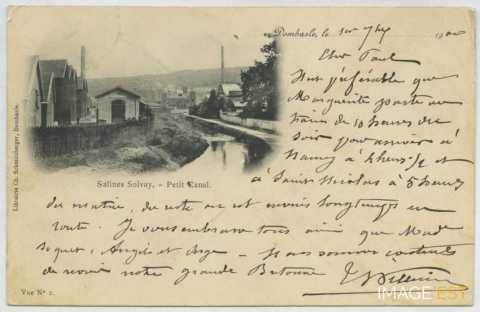 Dombasle, le 1er 7bre 1900
Cher Paul
Il est préférable que
Marguerite parte au
train de 10 heures du
soir pour arriver à
Nancy à 2 heures 1/2 et
à Saint Nicolas à 5 heures
du matin, du reste on est moins longtemps en
route. Je vous embrasse tous ainsi que
et - nous sommes contents
de revoir notre grande Bretonne
Salines Solvay. - Petit Canal.
Librairie Ch. Dombasle.
Vue N° 2.
IMAGE'EST